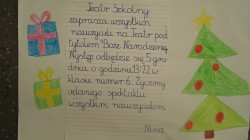 Teatr Szkolny
zaprasza wszystkich
nauczycieli na Teatr pod
tytułem "Boże Narodzenie".
Występ odbędzie się 5 gru-
dnia o godzinie 13:22 w
klasie numer 6. Życzymy
udanego spektaklu
wszystkim nauczycielom
Nina